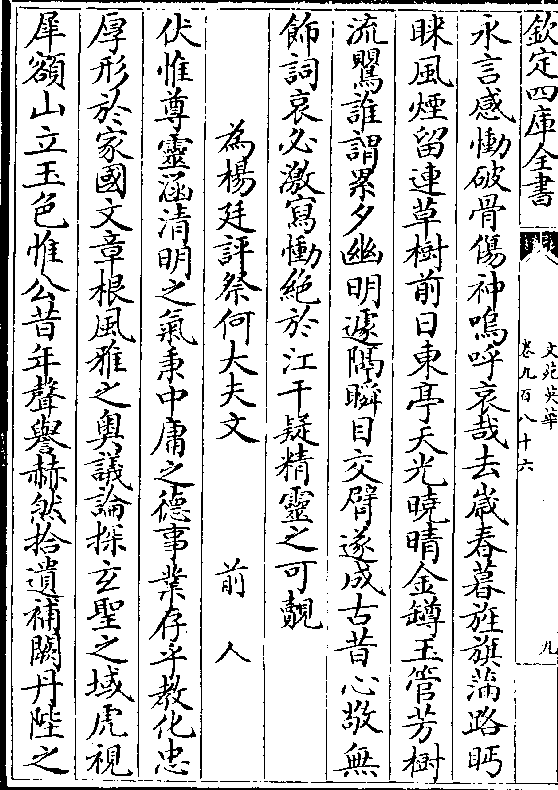 欽定四庫全書
文苑英華
卷九百八十六
九
永言感慟破骨傷神嗚呼哀哉去歲春暮旌旗滿路眄
睞風煙留連草樹前日東亭天光曉晴金罇玉管芳樹
流鸎誰謂累夕幽明遽隔瞬目交臂遂成古昔心敬無
飾詞哀必激寫慟絶於江干疑精靈之可覿
為楊廷評祭何大夫文 前人
伏惟尊靈涵清明之氣秉中庸之德事業存乎教化忠
厚形於家國文章根風雅之奥議論探玄聖之域虎視
犀額山立玉色惟公昔年聲譽赫然拾遺補闕丹陛之